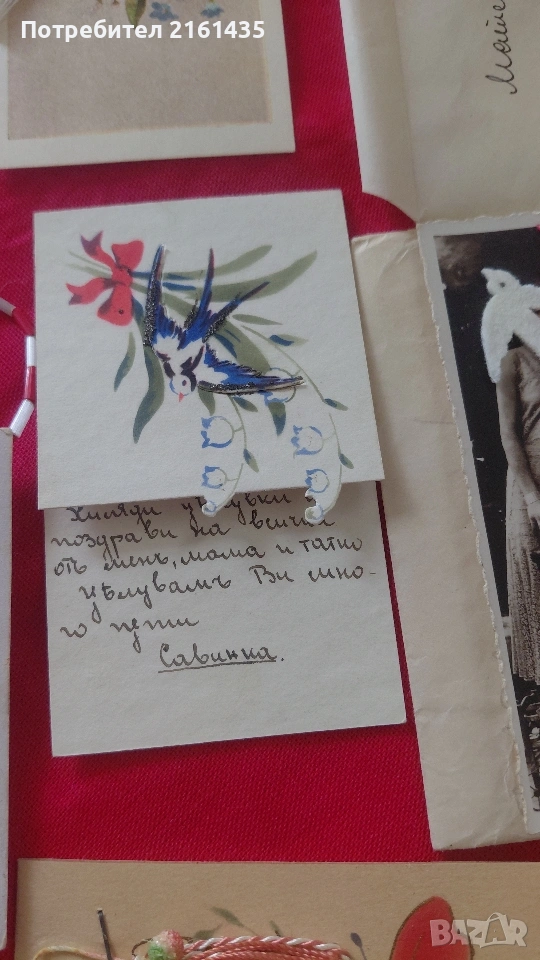 Потребител 2161435
Хиляди цѣлувки
поздрави на всички
отъ менъ, мама и татко
Цѣлувамъ Ви мно-
го пѫти
Савинка.
BAZAR